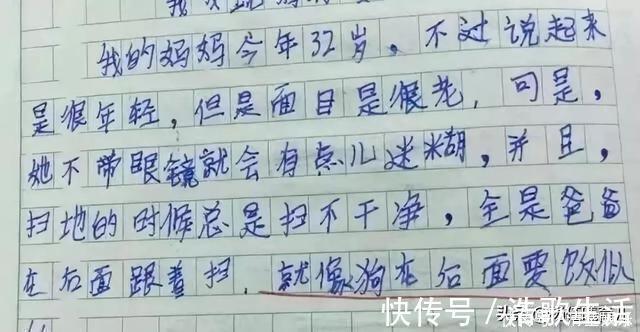 我的妈妈今年32岁，不过说起来
是很年轻，但是面目是很老，可是，
她不带眼镜就会有点儿迷糊，并且，
扫地的时候总是扫不干净，全是爸爸
在后面跟着扫，就像狗在后面要饭似
快传号／浩歌生活